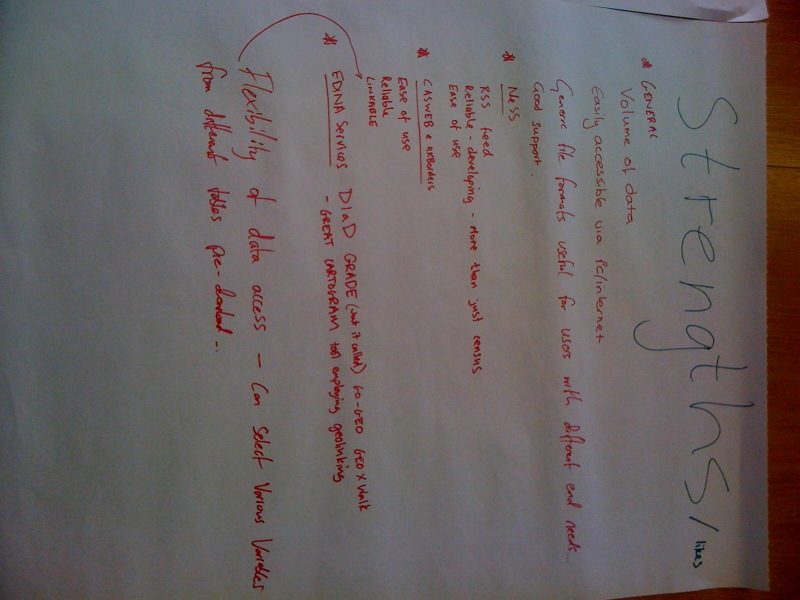 Strengths/likes
* GENERAL
Volume of data
Easily accessible via pc/internet
Generic file formats useful for users with different end needs...
Good support.
* NeSS
RSS feed
Reliable - developing - more than just census
Ease of use
* CASWEB & UKBORDERS
Ease of use
Reliable
LINKABLE
* EDINA Services DIaD GRADE (isn't it called) GO-GEO GEO X WALK
- GREAT CARTOGRAM tool employing geolinking
Flexibility of data access - Can select various variables
from different tables pre-download...